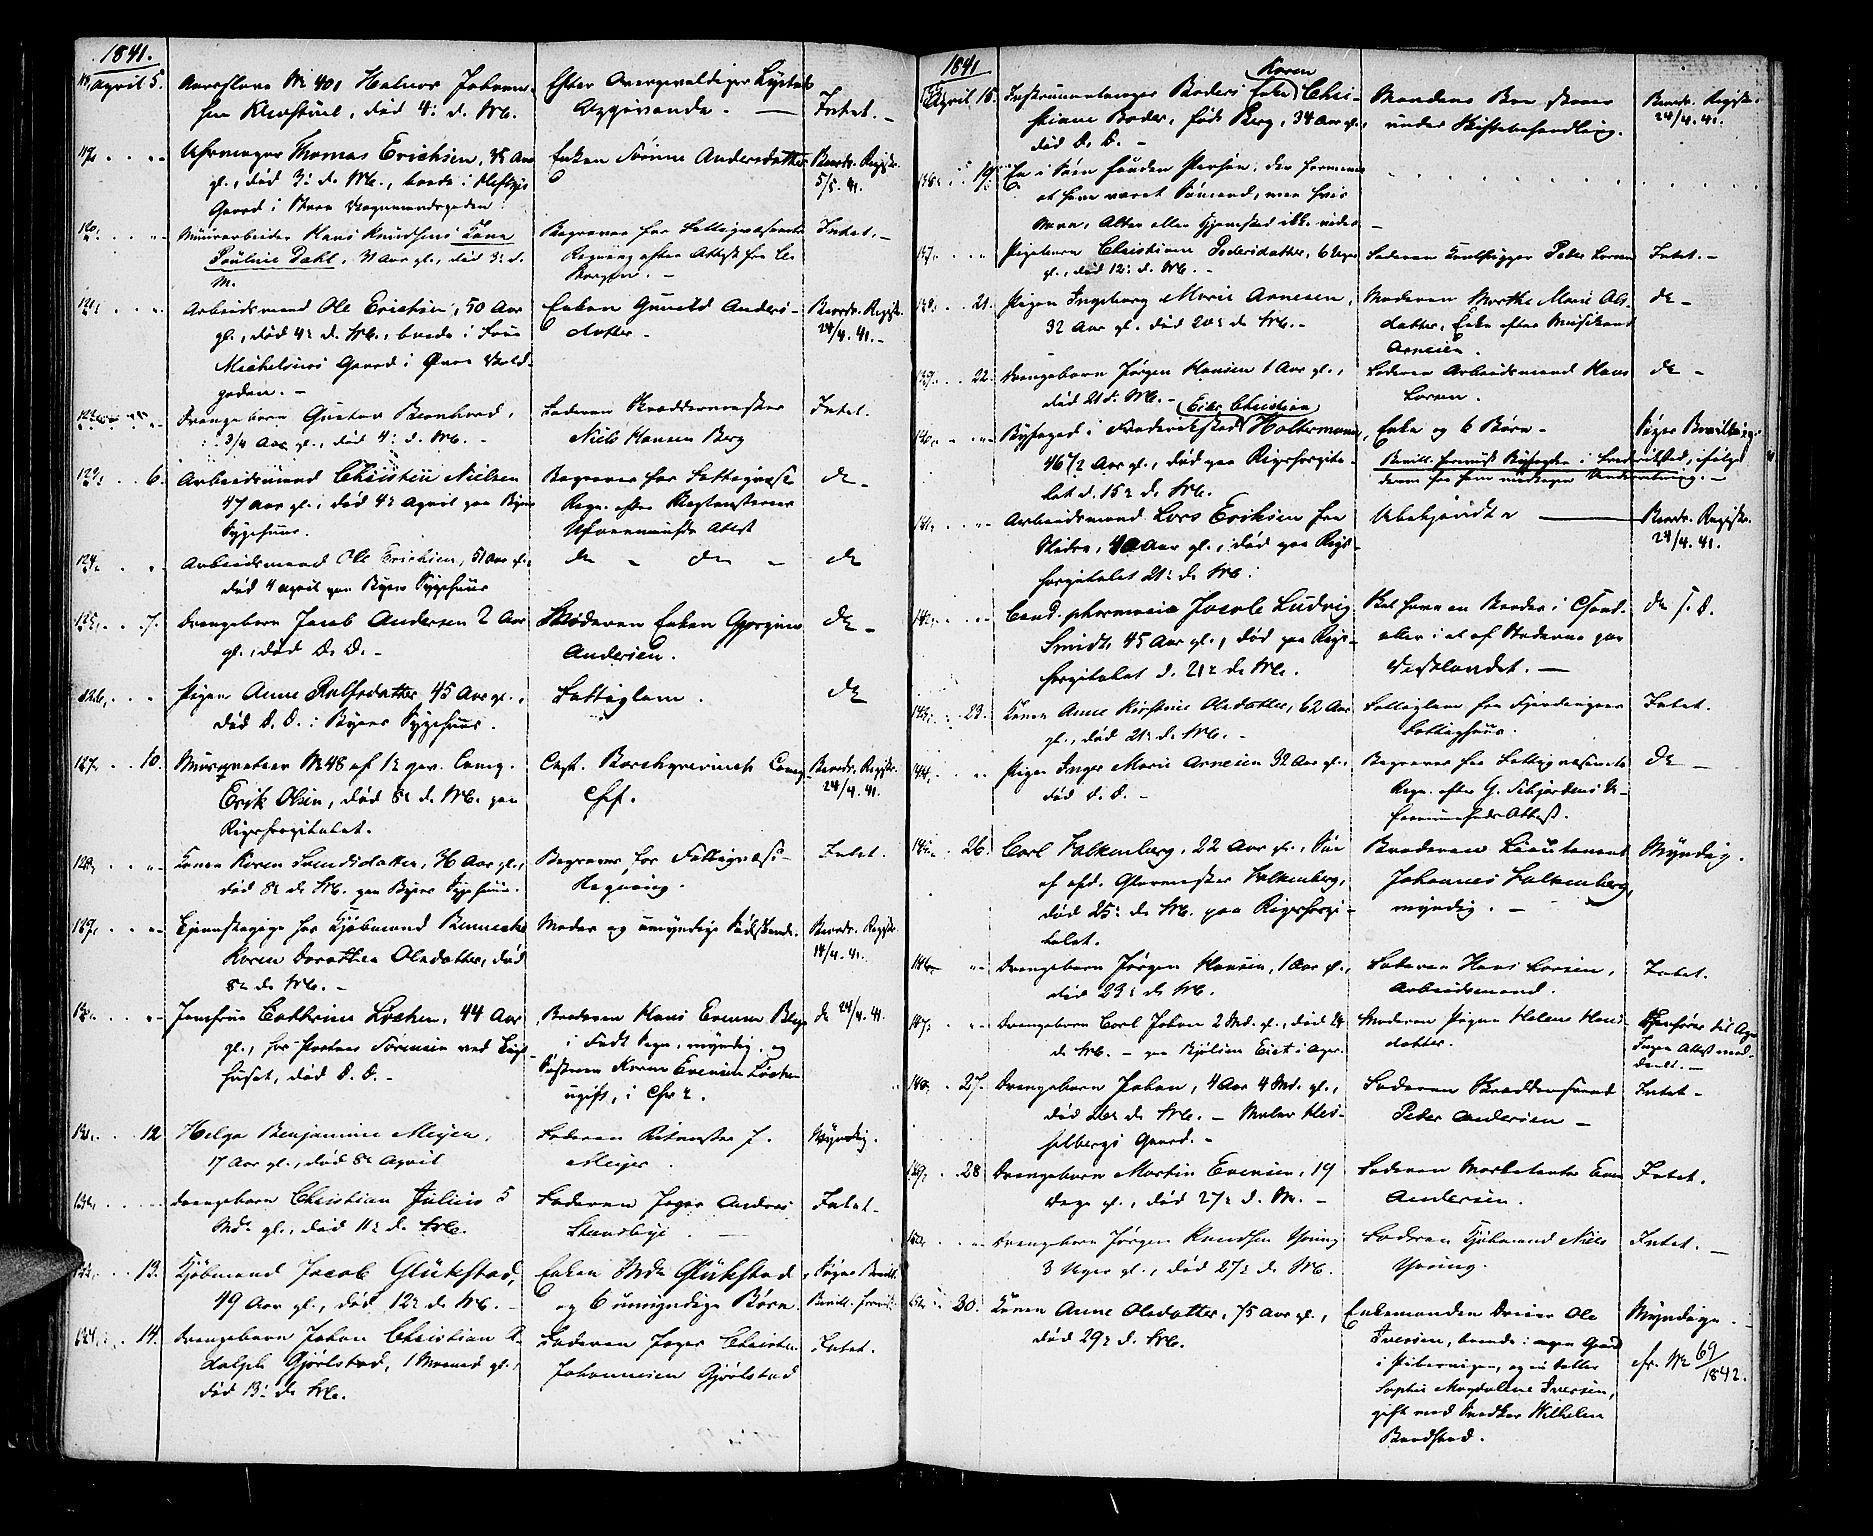 1841.
April 5. Slave No 401 Halvor Johann-
sen, død 4: d. M.
Efter Overgevaldiger
Angivende. —
Intet. —
119. Uhrmager Thomas Erichsen, Aar
gl., død 3: d. M., boede i
Gaard i Vognmandsgaden
Enken Andersdatter
Beordr. Registr.
5/5. 41.
120. Muurarbeider Hans Knudsens Kone
Pauline Dahl, 31 Aar gl., død 3: d.
M.
Begraves for Fattigvæsenets
Regning efter Attest fra
Intet. —
121. Arbeidsmand Ole Erichsen, 50 Aar
gl., død 4: d. M., boede i
Michelsens Gaard i Øvre Vold-
gaden. —
Enken Gunild Anders-
datter. —
Beordr. Registr.
24/4. 41. —
122. Drengebarn Gustav Bernhard,
3/4 Aar gl., død 4: d. M. —
Faderen Skræddermester
Niels Hansen Berg
Intet.
123. 6. Arbeidsmand Christen Nielsen
47 Aar gl., død 4: April paa Byens
Sygehuus.
Begraves for Fattigvæs.
Regn. efter
Uformuenheds Attest
do —
124. Arbeidsmand Ole Erichsen, 51 Aar gl.,
død 4 April paa Byens Sygehuus
do — do —
do
125. 7. Drengebarn Jacob Andersen 2 Aar
gl., død d. D. —
Moderen Enken
Andersen.
do —
126. Pigen Anne Rolfsdatter 45 Aar gl.,
død d. D. i Byens Sygehuus.
Fattiglem.
do
127. 10. Musqueteer No 48 af 1: gev. Comp.
Erik Olsen, død 8: d. M. paa
Rigshospitalet.
Capt. Borchgrevinck Comp.
Chef.
Beordr. Registr.
24/4. 41.
128. Konen Karen Svendsdatter, 36 Aar gl.,
død 8: d. M. paa Byens Sygehuus.
Begraves for Fattigvæs.
Regning.
Intet.
129. Tjenestepige hos Kjøbmand Bennecke
Karen Dorothea Olsdatter, død
8: d. M. —
Moder og umyndige Sødskende.
Beordr. Registr.
14/4. 41.
130. Jomfrue Cathrine Løchen, 44 Aar
gl., hos Sørensen ved
huset, død d. D. —
Broderen Hans Evensen
i Sogn, myndig, og
Søsteren Karen Evensen Løchen
ugift, i Chr.
do 24/4. 41.
131. 12. Helga Benjamine Meyer,
17 Aar gl., død 8: April
Faderen Ritmester J.
Meyer.
Myndig.
132. Drengebarn Christian Julius 5
Md. gl., død 11: d. M.
Faderen Andreas
Intet.
133. 13. Kjøbmand Jacob Glückstad,
49 Aar gl., død 12: d. M. —
Enken Md. Glückstad
og 6 umyndige Børn
Søger Bevill.
Bevill.
134. 14. Drengebarn Johan Christian A-
dolph Gjørlstad, 1 Maaned gl.,
død 13: d. M.
Faderen Christen
Johannesen Gjørlstad
Intet.
1841
Karen
April 15. Instrumentmager Baders Enke Chri-
stiane Bader, født Berg, 34 Aar gl.,
død d. D. —
Mandens Boe staaer
under Skiftebehandling.
Beordr. Registr.
24/4. 41.
136. 19. En i Søen funden Person, der formenes
at have været Sømand, men hvis
Navn, Alder eller Hjemsted ikke vides —
137. Pigebarn Christiane Pedersdatter, 6 Uger
gl., død 12: d. M. —
Faderen Peder Larsen
Intet. —
138. 21. Pigen Ingeborg Marie Arnesen,
32 Aar gl. død 20: d. M. —
Moderen Marthe Marie Ols-
datter, Enke efter
Arnesen.
do —
139. 22. Drengebarn Jørgen Hansen 1 Aar gl.,
død 21 d. M. —
Faderen Arbeidsmand Hans
Larsen.
do —
Christian
140. Byfoged i Frederikstad Holtermann,
46 1/2 Aar gl., død paa Rigshospita-
let d. 15: d. M.
Enke og 6 Børn —
Søger Bevilling.
Bevill. Byfogden i Frederikstad, ifølge
derom fra ham modtagen Underretning. —
141. Arbeidsmand Lars Eriksen fra
40 Aar gl., død paa Rigs-
hospitalet 21: d. M.
Ubekjendte —
Beordr. Registr.
24/4. 41.
142. Cand. pharmacie Jacob Ludvig
Smidt, 45 Aar gl., død paa Rigs-
hospitalet d. 21: d. M.
Skal have en Broder i
eller i et af Stederne paa
Vestlandet. —
do s. D.
143. 23. Konen Anne Kirstine Olsdatter, 62 Aar
gl., død 21: d. M. —
Fattiglem fra Fjerdingens
Fattighuus.
Intet.
144. Pigen Inger Marie Arnesen 32 Aar gl.,
død d. D. —
Begraves for Fattigvæsenets
Regn. efter G. U-
formuenheds Attest.
do —
145. 26. Carl Falkenberg, 22 Aar gl., Søn
af afd. Glarmester Falkenberg,
død 25: d. M. paa Rigshospi-
talet.
Broderen Lieutenant
Johannes Falkenberg,
myndig. —
Myndig.
146. Drengebarn Jørgen Hansen, 1 Aar gl.,
død 23: d. M.
Faderen Hans Larsen,
Arbeidsmand.
Intet.
147. Drengebarn Carl Johan 2 Md. gl., død 24
d. M. — paa
Moderen Pigen Helene Hans-
datter.
Henhører til Ager
Ingen Attest med-
deelt. —
148. 27. Drengebarn Johan, 4 Aar 4 Md. gl.,
død 26: d. M. — Maler Hes-
selbergs Gaard. —
Faderen Skræddersvend
Peder Andersen —
Intet —
149. 28 Drengebarn Martin Evensen, 19
Dage gl., død 27: d. M. —
Faderen Marketenter Even
Andersen.
Intet.
150. Drengebarn Jørgen Knudsen Young
3 Uger gl., død 27: d. M.
Faderen Kjøbmand Niels
Young.
Intet. —
151. 30. Konen Anne Olsdatter, 75 Aar gl.,
død 29: d. M.
Enkemanden Dreier Ole
Iversen, boende i egen Gaard
i Pipervigen, og en Datter
Sophie Magdalene Iversen,
gift med Snedker Wilhelm
Myndige —
cfr. No 69/1842.